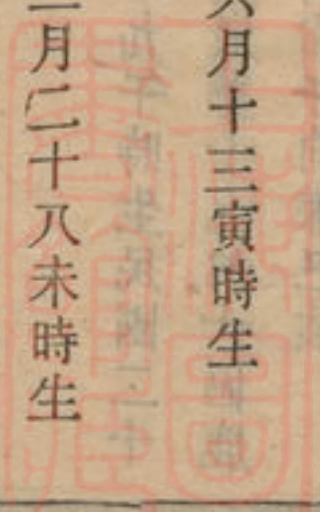 月十三寅時生
月二十八未時生